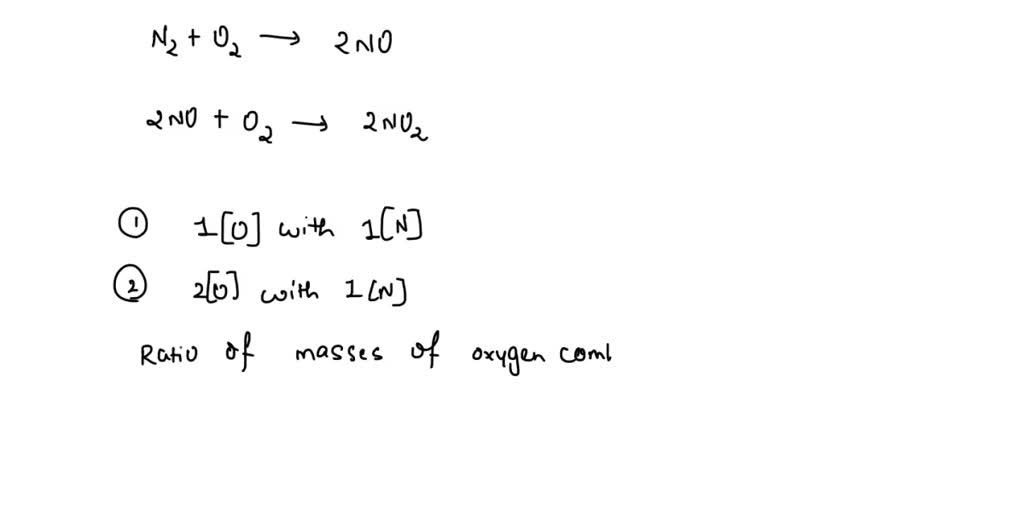 N₂ + O₂ → 2NO
2NO + O₂ → 2NO₂
① 1[O] with 1[N]
② 2[O] with 1[N]
Ratio of masses of oxygen coml